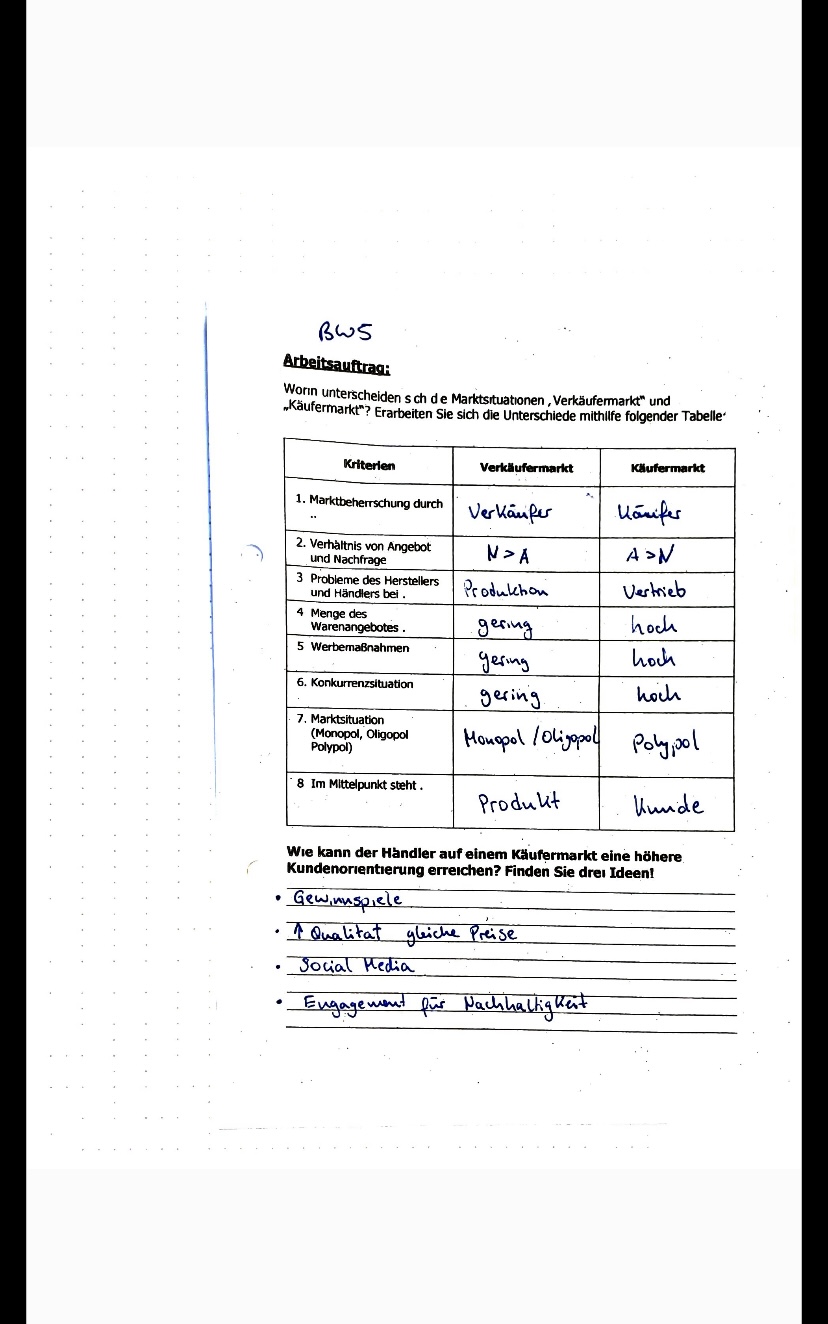 BWS
Arbeitsauftrag:
Worin unterscheiden s ch d e Marktsituationen „Verkäufermarkt" und
„Käufermarkt"? Erarbeiten Sie sich die Unterschiede mithilfe folgender Tabelle
Kriterien Verkäufermarkt Käufermarkt
1. Marktbeherrschung durch .. Verkäufer Käufer
2. Verhältnis von Angebot
und Nachfrage N > A A > N
3 Probleme des Herstellers
und Händlers bei . Produktion Vertrieb
4 Menge des
Warenangebotes . gering hoch
5 Werbemaßnahmen gering hoch
6. Konkurrenzsituation gering hoch
7. Marktsituation
(Monopol, Oligopol
Polypol) Monopol / Oligopol Polypol
8 Im Mittelpunkt steht . Produkt Kunde
Wie kann der Händler auf einem Käufermarkt eine höhere
Kundenorientierung erreichen? Finden Sie drei Ideen!
• Gewinnspiele
• ↑ Qualität gleiche Preise
• Social Media
• Engagement für Nachhaltigkeit